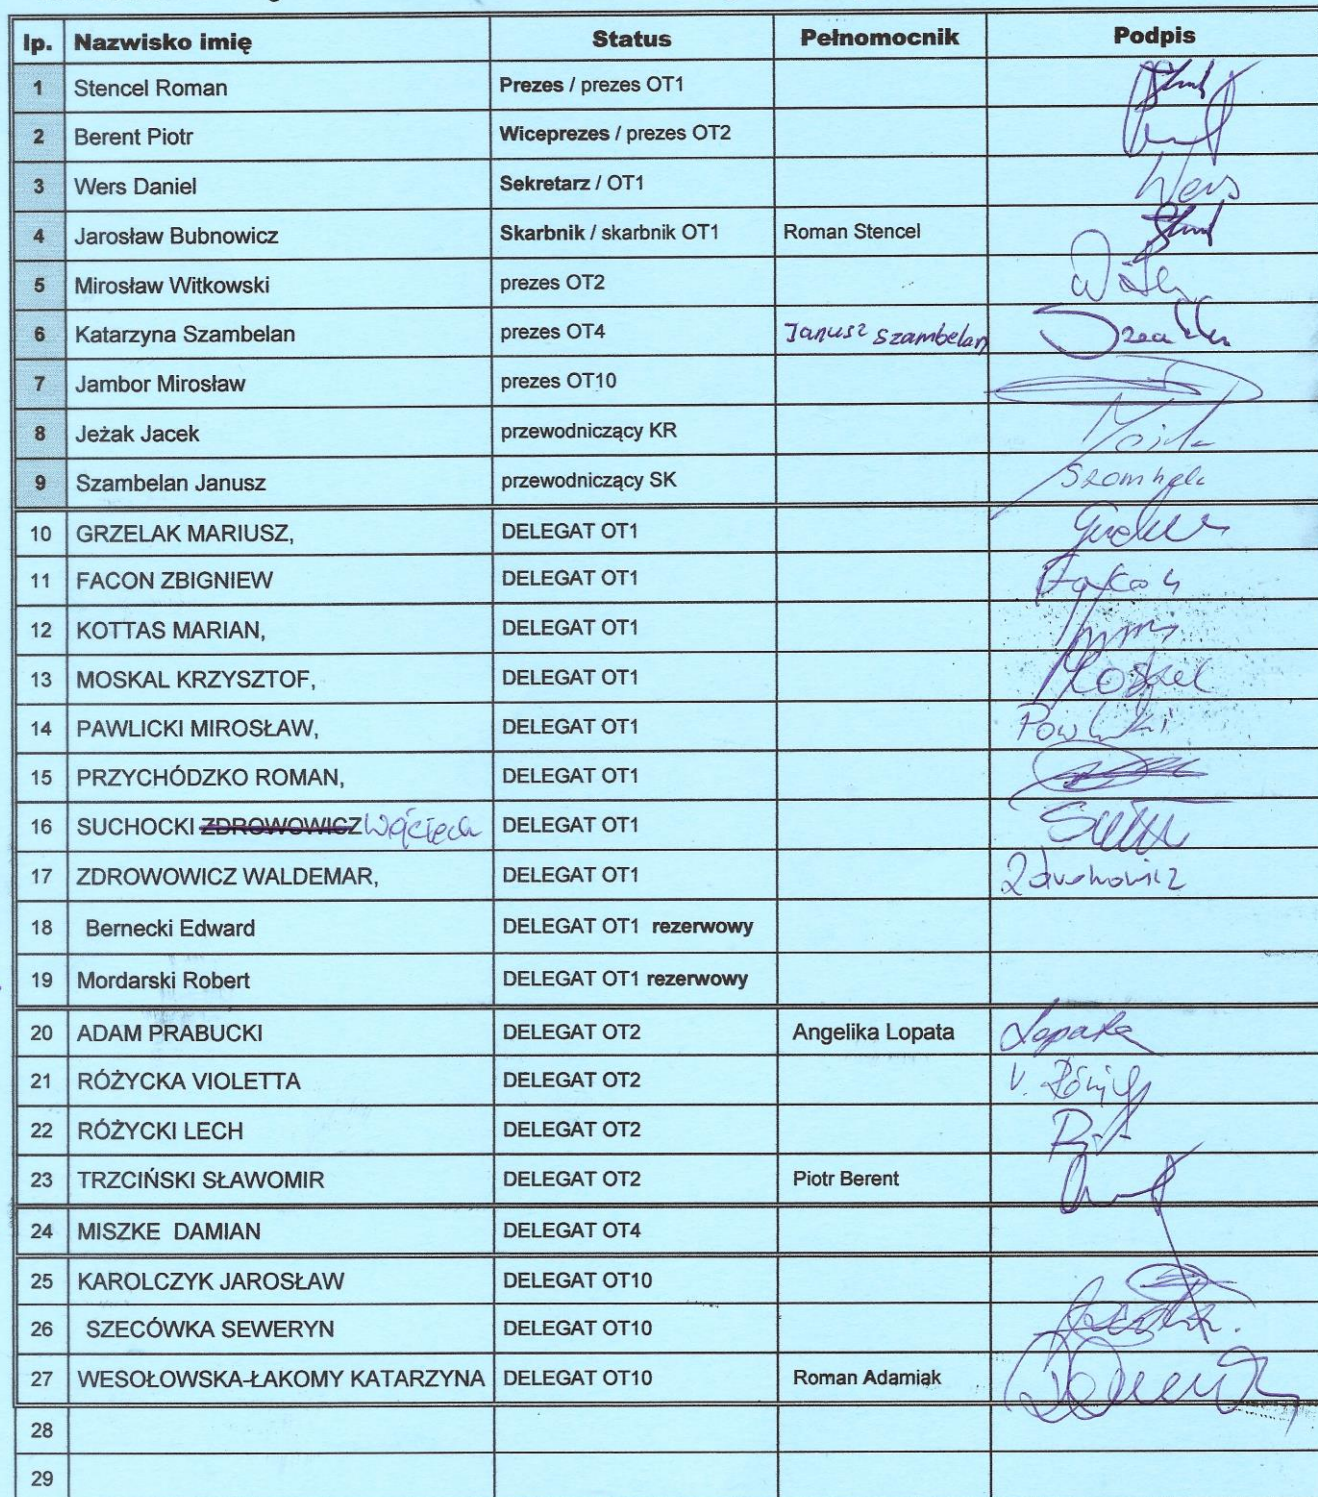 lp. Nazwisko imię Status Pełnomocnik Podpis
1 Stencel Roman Prezes / prezes OT1
2 Berent Piotr Wiceprezes / prezes OT2
3 Wers Daniel Sekretarz / OT1 Wers
4 Jarosław Bubnowicz Skarbnik / skarbnik OT1 Roman Stencel
5 Mirosław Witkowski prezes OT2
6 Katarzyna Szambelan prezes OT4 Janusz Szambelan
7 Jambor Mirosław prezes OT10
8 Jeżak Jacek przewodniczący KR
9 Szambelan Janusz przewodniczący SK
10 GRZELAK MARIUSZ, DELEGAT OT1
11 FACON ZBIGNIEW DELEGAT OT1
12 KOTTAS MARIAN, DELEGAT OT1
13 MOSKAL KRZYSZTOF, DELEGAT OT1
14 PAWLICKI MIROSŁAW, DELEGAT OT1
15 PRZYCHÓDZKO ROMAN, DELEGAT OT1
16 SUCHOCKI ZDROWOWICZ Wojciech DELEGAT OT1
17 ZDROWOWICZ WALDEMAR, DELEGAT OT1
18 Bernecki Edward DELEGAT OT1 rezerwowy
19 Mordarski Robert DELEGAT OT1 rezerwowy
20 ADAM PRABUCKI DELEGAT OT2 Angelika Lopata Lopata
21 RÓŻYCKA VIOLETTA DELEGAT OT2
22 RÓŻYCKI LECH DELEGAT OT2
23 TRZCIŃSKI SŁAWOMIR DELEGAT OT2 Piotr Berent
24 MISZKE DAMIAN DELEGAT OT4
25 KAROLCZYK JAROSŁAW DELEGAT OT10
26 SZECÓWKA SEWERYN DELEGAT OT10
27 WESOŁOWSKA-ŁAKOMY KATARZYNA DELEGAT OT10 Roman Adamiak
28
29